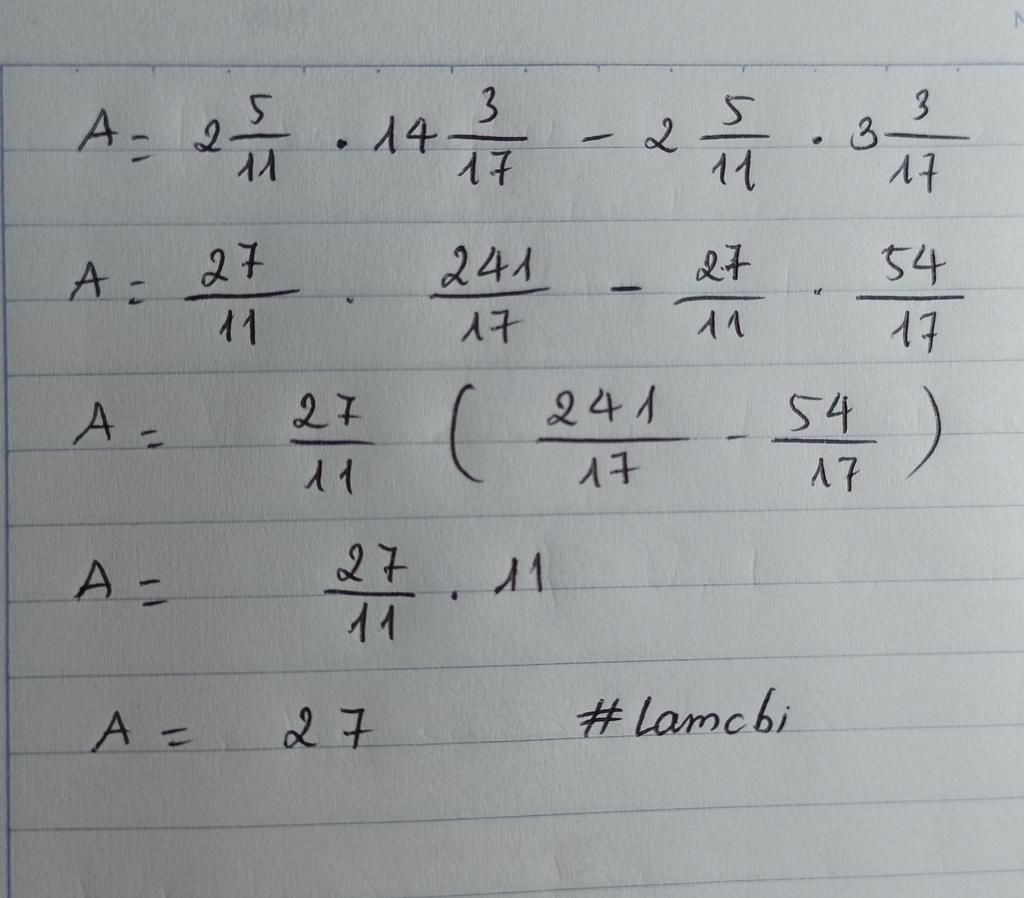 A = 2 5/11 . 14 3/17 - 2 5/11 . 3 3/17
A = 27/11 . 241/17 - 27/11 . 54/17
A = 27/11 ( 241/17 - 54/17 )
A = 27/11 . 11
A = 27 #Lamcbi